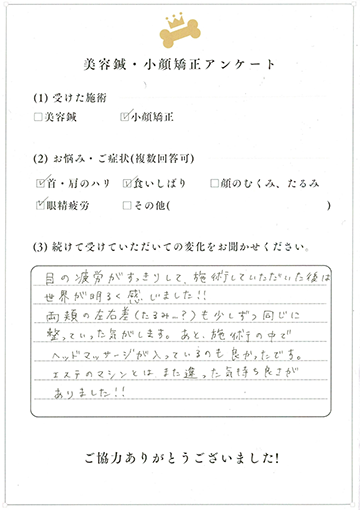 美容鍼・小顔矯正アンケート
(1) 受けた施術
□美容鍼 ☑小顔矯正
(2) お悩み・ご症状(複数回答可)
☑首・肩のハリ ☑食いしばり □顔のむくみ、たるみ
☑眼精疲労 □その他( )
(3) 続けて受けていただいての変化をお聞かせください。
目の疲労がすっきりして、施術していただいた後は
世界が明るく感じました!!
両頬の左右差(たるみー?)も少しずつ同じに
整っていった気がします。あと、施術の中で
ヘッドマッサージが入っているのも良かったです。
エステのマシンとは、また違った気持ち良さが
ありました!!
ご協力ありがとうございました!